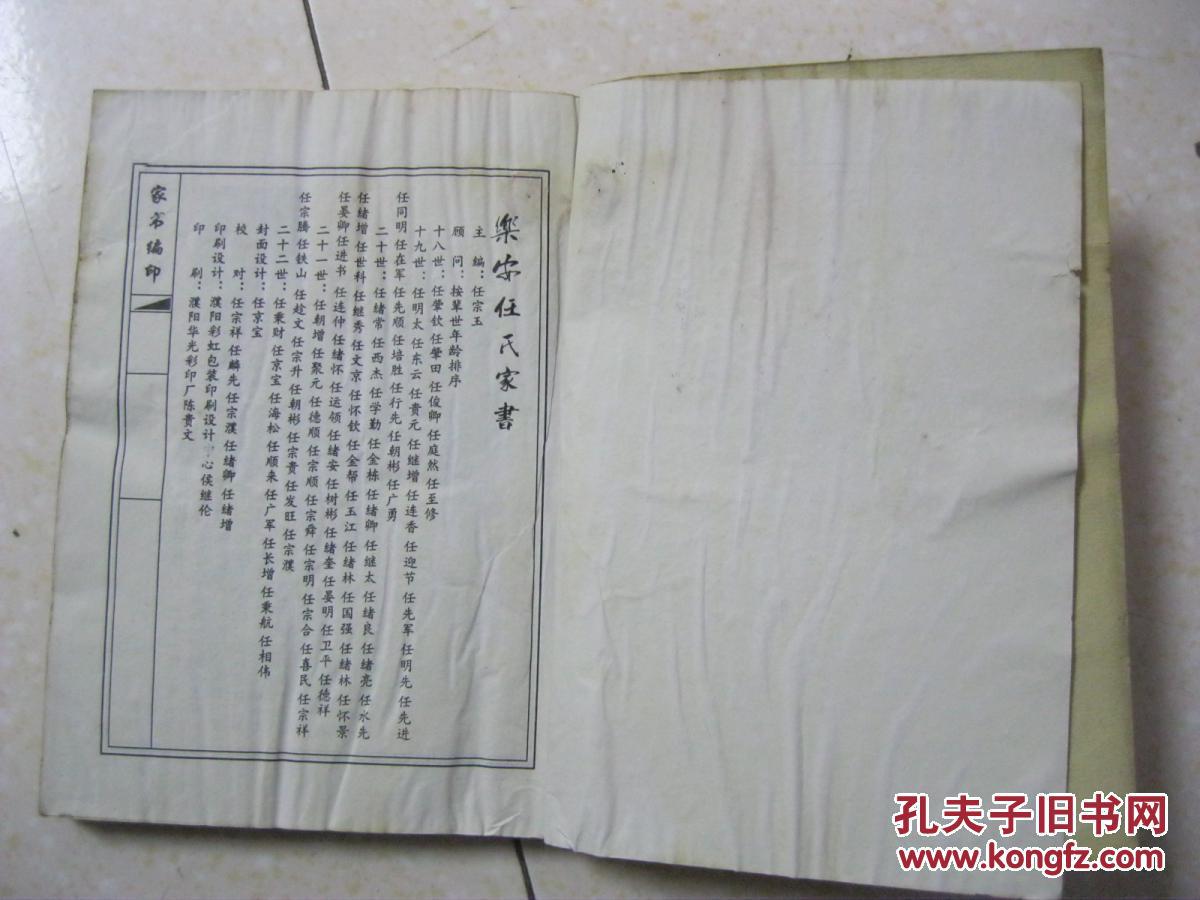 樂安任氏家書
主 编：任宗玉
顾 问：按辈世年龄排序
十八世：任肇钦 任肇田 任俊卿 任庭然 任至修
十九世：任明太 任东云 任贵元 任继增 任连香 任迎节 任先军 任明先 任先进
任同明 任在军 任先顺 任培胜 任行先 任朝彬 任广勇
二十世：任绪常 任西杰 任学勤 任金栋 任绪卿 任继太 任绪良 任绪亮 任水先
任绪增 任世科 任继秀 任文京 任怀钦 任金帮 任玉江 任绪林 任国强 任绪林 任怀景
任晏卿 任进书 任连仲 任绪怀 任运领 任绪安 任树彬 任绪奎 任晏明 任卫平 任德祥
二十一世：任朝增 任聚元 任德顺 任宗顺 任宗舜 任宗明 任宗合 任喜民 任宗祥
任宗腾 任铁山 任趁文 任宗升 任朝彬 任宗贵 任发旺 任宗濮
二十二世：任秉财 任京宝 任海松 任顺来 任广军 任长增 任秉航 任相伟
封面设计：任京宝
校 对：任宗祥 任麟先 任宗濮 任绪卿 任绪增
印刷设计：濮阳彩虹包装印刷设计中心侯继伦
印 刷：濮阳华光彩印厂陈贵文
家书编印
孔夫子旧书网
www.kongfz.com